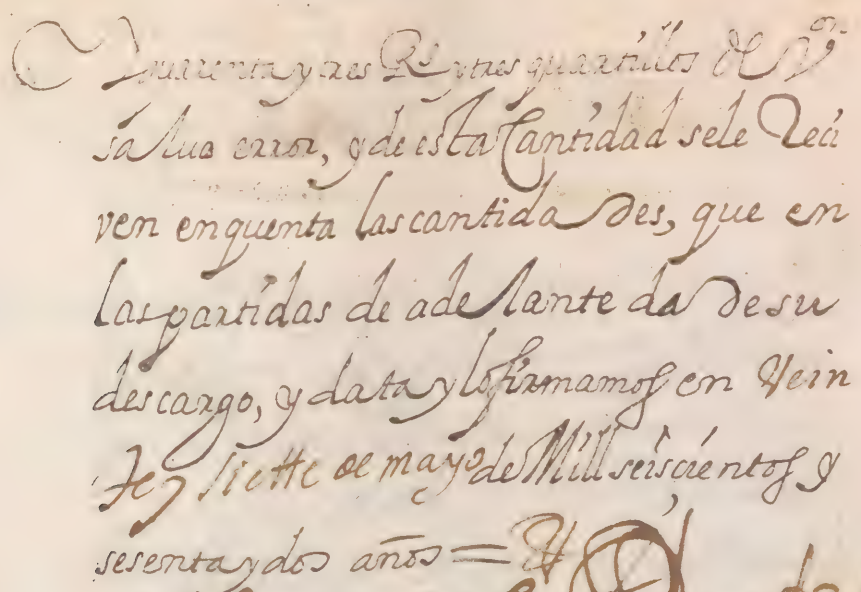 y quarenta y tres Rs. y tres quartillos de Von.
saluo error, y de esta Cantidad sele Reci
ven enquenta las cantidades, que en
las partidas de adelante da de su
descargo, y data y lo firmamos en Vein
te y siette de mayo de Mill seiscientos y
sesenta y dos años =